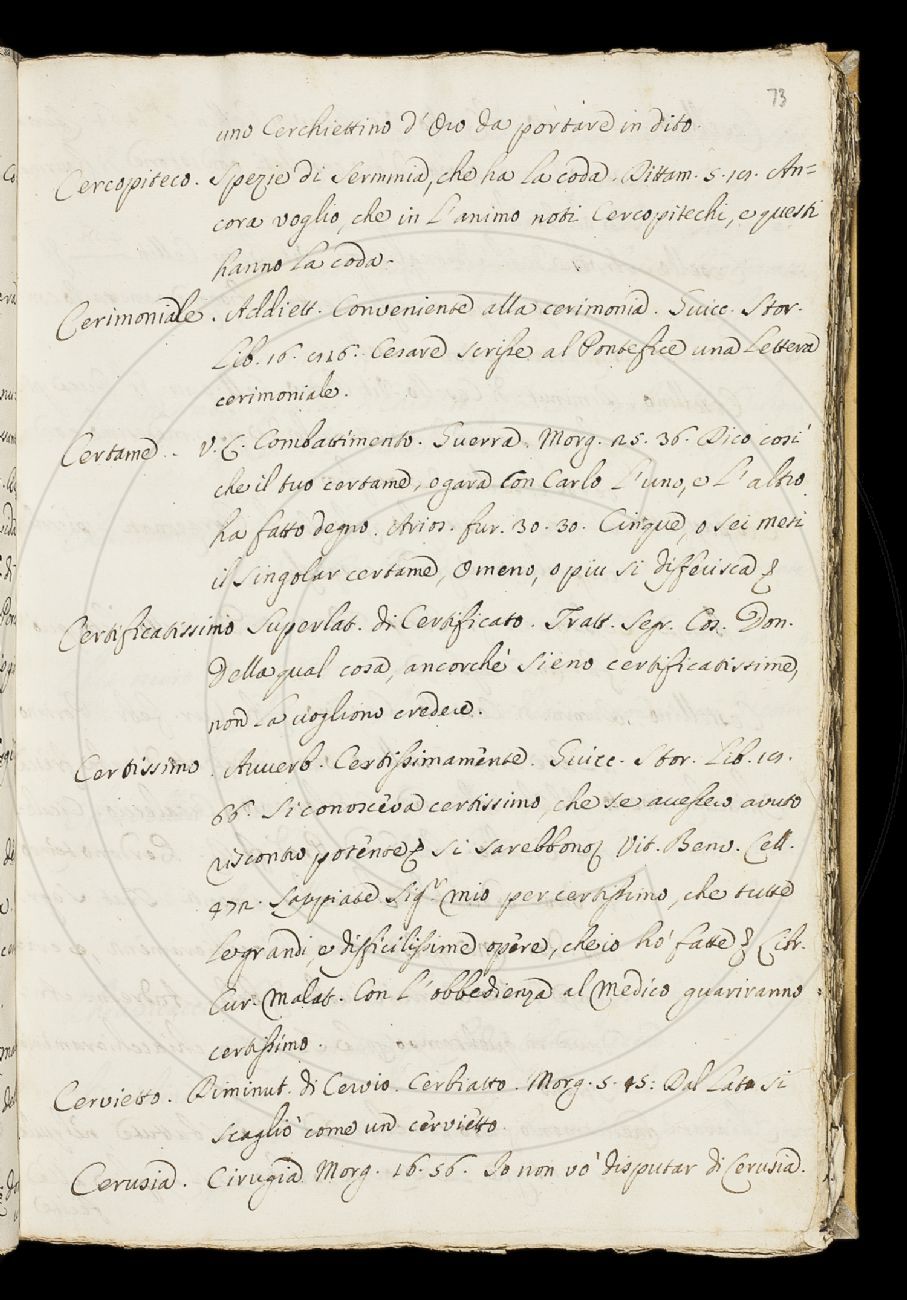 73
uno Cerchiettino d' Oro da portare in dito.
Cercopiteco. Spezie di Scrimmia, che ha la coda. Dittam. 5. 19. An=
cora voglio, che in l'animo noti Cercopitechi, e questi
hanno la coda.
Cerimoniale. Addiett. Conveniente alla cerimonia. Guicc. Stor.
Lib. 16. 216. Cesare scrisse al Pontefice una Lettera
cerimoniale.
Certame.. V. L. Combattimento. Guerra. Morg. 25. 36. Dico così
che il tuo certame, o gara con Carlo l'uno, e l'altro
ha fatto degno. Arios. fur. 30. 30. Cinque, o sei mesi
il singolar certame, O meno, o piu si differisca
Certificatissimo Superlat. di Certificato. Tratt. Segr. Cos. Don.
Della qual cosa, ancorchè sieno certificatissime,
non la vogliono credere.
Certissimo. Avverb. Certissimamente. Guicc. Stor. Lib. 19.
66. Si conosceva certissimo, che se avessero avuto
riscontro potente si sarebbono Vit. Benv. Cell.
472. Sappiate Sigr. mio per certissimo, che tutte
le grandi, e difficilissime opere, che io hò fatte Libr.
Cur. Malat. Con l'obbedienza al Medico guariranno
certissimo.
Cervietto. Diminut. di Cervio. Cerbiatto. Morg. 5. 45: Dal lato si
scagliò come un cervietto.
Cerusia. Cirugia Morg. 16. 56. Io non vo' disputar di Cerusia.